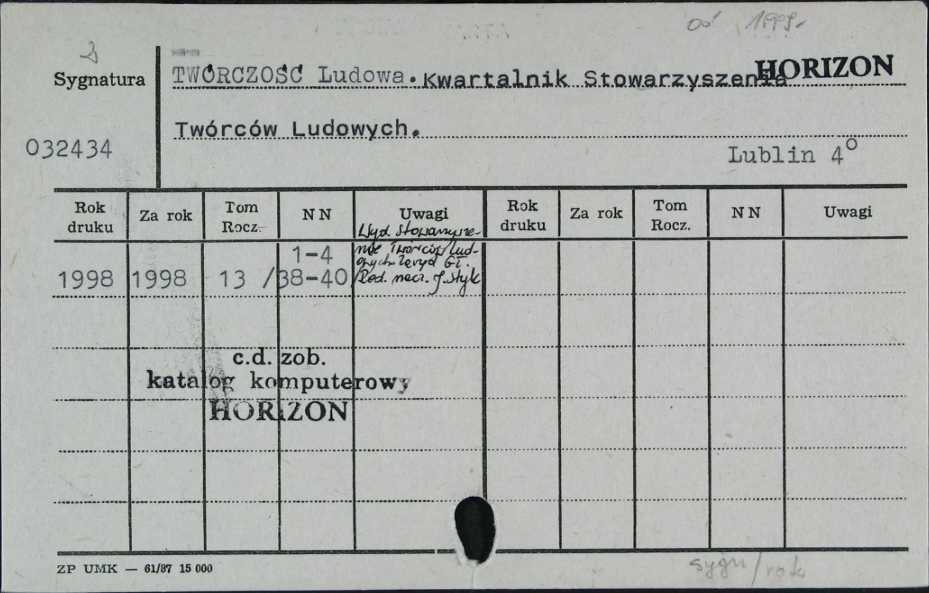 od 1998r
Sygnatura TWÓRCZOŚĆ Ludowa. Kwartalnik Stowarzyszenia HORIZON
Twórców Ludowych.
032434
Lublin 4°
Rok druku Za rok Tom Rocz. NN Uwagi Rok druku Za rok Tom Rocz. NN Uwagi
Wyd. Stowarzysze-
nie Twórców Lud-
owych Zarząd Gł.
1998 1998 13 / 1-4 38-40 Red. nacz. J. Styk
c.d. zob.
katalog komputerowy
HORIZON
ZP UMK — 61/87 15 000
sygn/rok